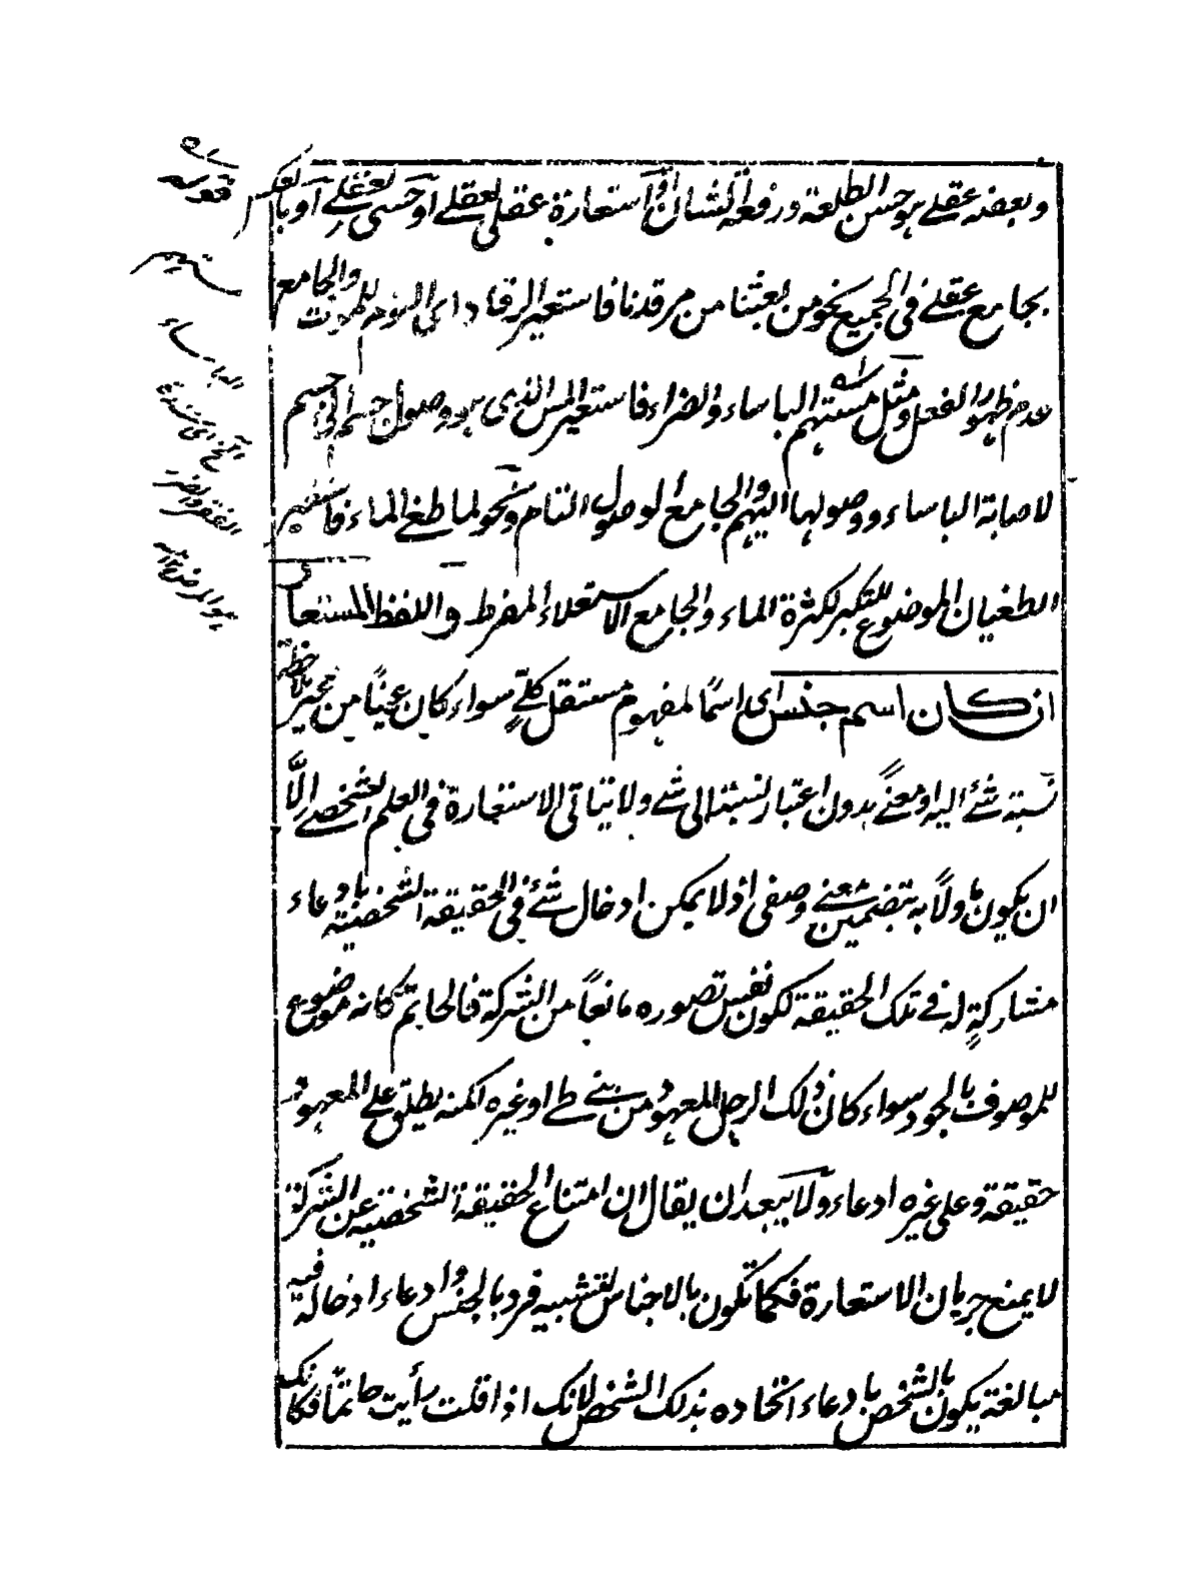 وبعضه عقلے هو حسن الطلعة ورفعة الشان او استعارة عقلی لعقلے او حسی لعقلے او بالعکس
بجامع عقلے فی الجمیع نحو من بعثنا من مرقدنا فاستعیر الرقاد ای النوم للموت والجامع
عدم ظهور الفعل ومثل مستهم الباساء والضراء فاستعیر المس الذی هو وصول جسم الی جسم
لاصابة الباساء ووصولها الیهم والجامع الوصول التام ونحو لما طغی الماء فاستعیر
الطغیان الموضوع للتکبر لکثرة الماء والجامع الاستعلاء المفرط واللفظ المستعار
ان کان اسم جنس ای اسمًا لمفهوم مستقل کلیٍّ سواء کان عینًا من غیر ملاحظة
نسبته شئ الیه او معنیً بدون اعتبار نسبته الی شے ولا تتاتی الاستعارة فی العلم الشخصے الَّا
ان یکون ماولًا به بتضمین معنے وصفی اذ لا یمکن ادخال شئ فی الحقیقة الشخصیة بادعاء
مشارکةٍ له فے تلک الحقیقة لکون نفس تصوره مانعًا من الشرکة فالحاتم کانه موضوع
للموصوف بالجود سواء کان ذلک الرجل المعهود من بنے طے او غیره لکنه یطلق علے المعهود
حقیقة وعلی غیره ادعاء ولا یبعد ان یقال ان امتناع الحقیقة الشخصیة عن الشرکة
لا یمنع جریان الاستعارة فکما تکون بالاجناس لتشبیه فرد بالجنس وادعاء ادخاله فیه
مبالغة یکون بالشخص بادعاء اتحاده بذلک الشخص لانک اذا قلت رأیت حاتمًا فکانک
قوله
مستهم
الباساء